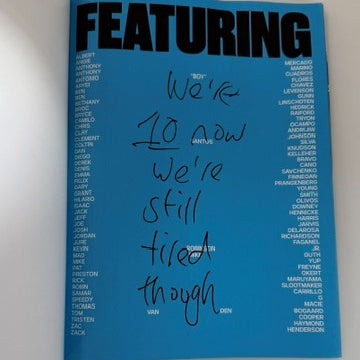 FEATURING
ALBERT
ANTHONY
ANTHONY
ANTONIO
BEN
BEN
BETHANY
BROC
BRYCE
CAMILO
CHRIS
CLAY
CLEMENT
COLTIN
DAN
DIEGO
DEREK
DENIS
EMMA
FELIX
GARY
GRANT
HILARIO
ISAAC
JACK
JEFF
JOE
JOSH
JORDAN
JUNE
KEVIN
MAD
MIKE
PAT
PRESTON
RICK
ROBIN
SAMAR
SPEEDY
THOMAS
TOM
TRISTEN
ZAC
ZACK
"BOY"
We're
10 now
we're
still
tired
though
ROBINSON
VAN DEN
MERCADO
MARMO
CUADROS
FLORES
CHAVEZ
LEVENSON
GURN
LINSCHOTEN
HEDRICK
RAIFORD
TRYON
OCAMPO
ANDRIJNI
JOHNSON
SILVA
KNUDSON
KELLEHER
BRAVO
CANO
SAVCHENKO
FINNEGAN
PRANGENBERG
YOUNG
SMITH
OLIVOS
DOWNEY
HENNICKE
HARRIS
JARVIS
DELAROSA
RICHARDSON
FAGANEL
JR.
GUTH
YUP
FREYNE
OKERT
MARUYAMA
SLOOTMAKER
CARRILLO
G
MACIE
BOGAARD
COOPER
HAYMOND
HENDERSON